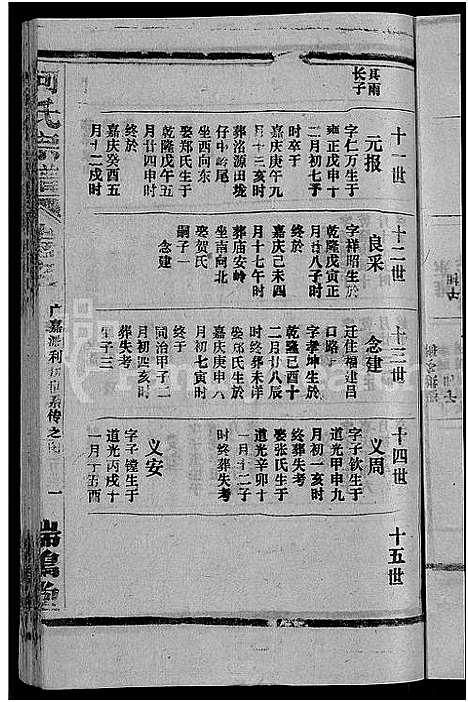 十一世
其雨
长子
元报
字仁万生于
雍正戊申十
二月初七子
时卒于
嘉庆庚午九
月十三亥时
葬洺源田垅
仔中岭尾
坐西向东
娶郑氏生于
乾隆戊午五
月廿四申时
终於
嘉庆癸酉五
月十二戌时
十二世
良采
字祥昭生於
乾隆戊寅正
月廿八子时
终於
嘉庆己未四
月十七午时
葬庙安岭
坐南向北
娶贺氏
嗣子一
念建
十三世
念建
迁住福建昌
口路
字孝坤生於
乾隆己酉十
二月廿八辰
时终葬未详
娶郑氏生於
嘉庆庚申八
月初七寅时
终于
同治甲子二
月初四亥时
葬失考
生子三
十四世
义周
字子钦生于
道光甲申九
月初一亥时
终葬失考
娶张氏生于
道光辛卯十
一月十二子
时终葬失考
义安
字子镗生于
道光丙戌十
一月十五酉
十五世
何氏宗谱
一